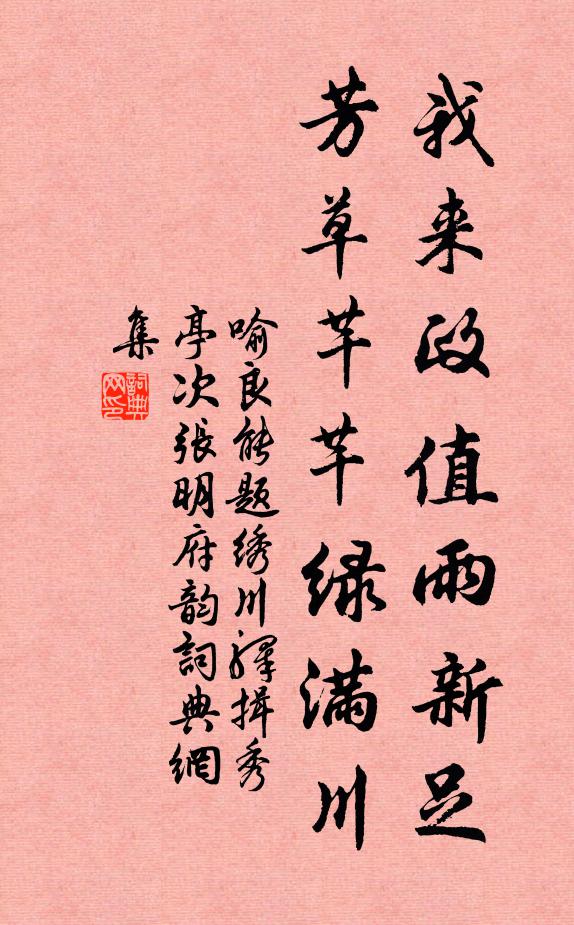 我来政值雨新足
芳草芊芊绿满川
喻良能题绣川驿揖秀
亭次張明府韵詞典網
集
詞典网印